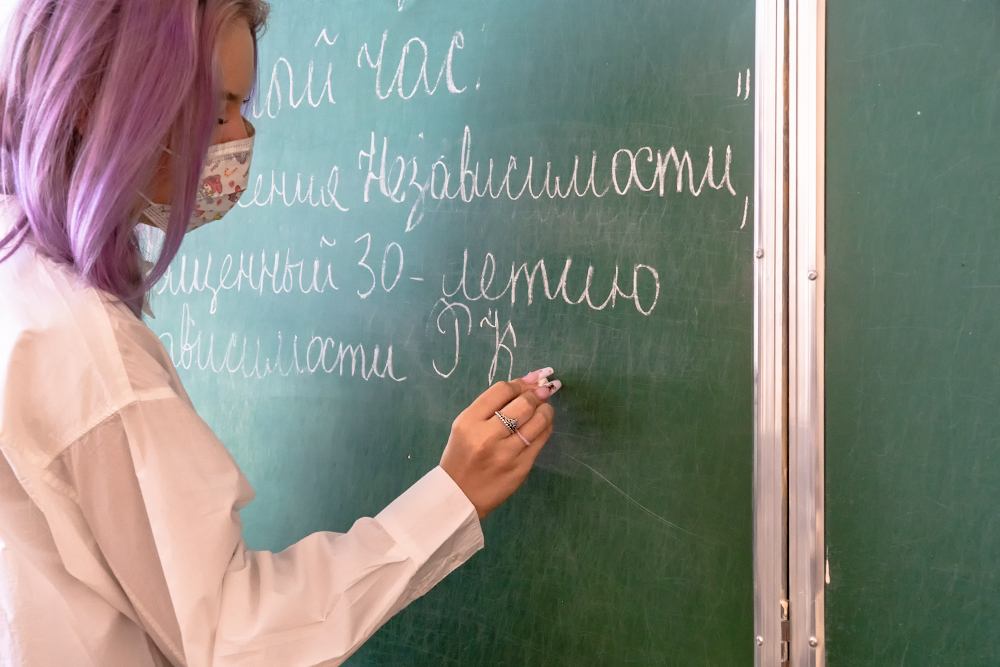 ный час. "
ения Независимости,
ященный 30-летию
ависимости РК